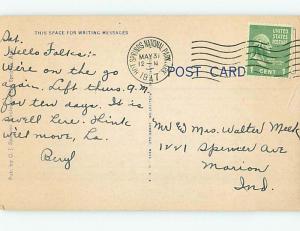 THIS SPACE FOR WRITING MESSAGES
Sat.
Hello Folks:-
We're on the go
again. Left thurs. A.M.
for ten days. It is
swell here. Think
we'll move, Ha.
Beryl
HOT SPRINGS NATIONAL PARK, ARK.
MAY 31
12 - M
1947
UNITED STATES POSTAGE
1 CENT 1
POST CARD
Mr & Mrs. Walter Meek
1221 Spencer Ave
Marion
Ind.